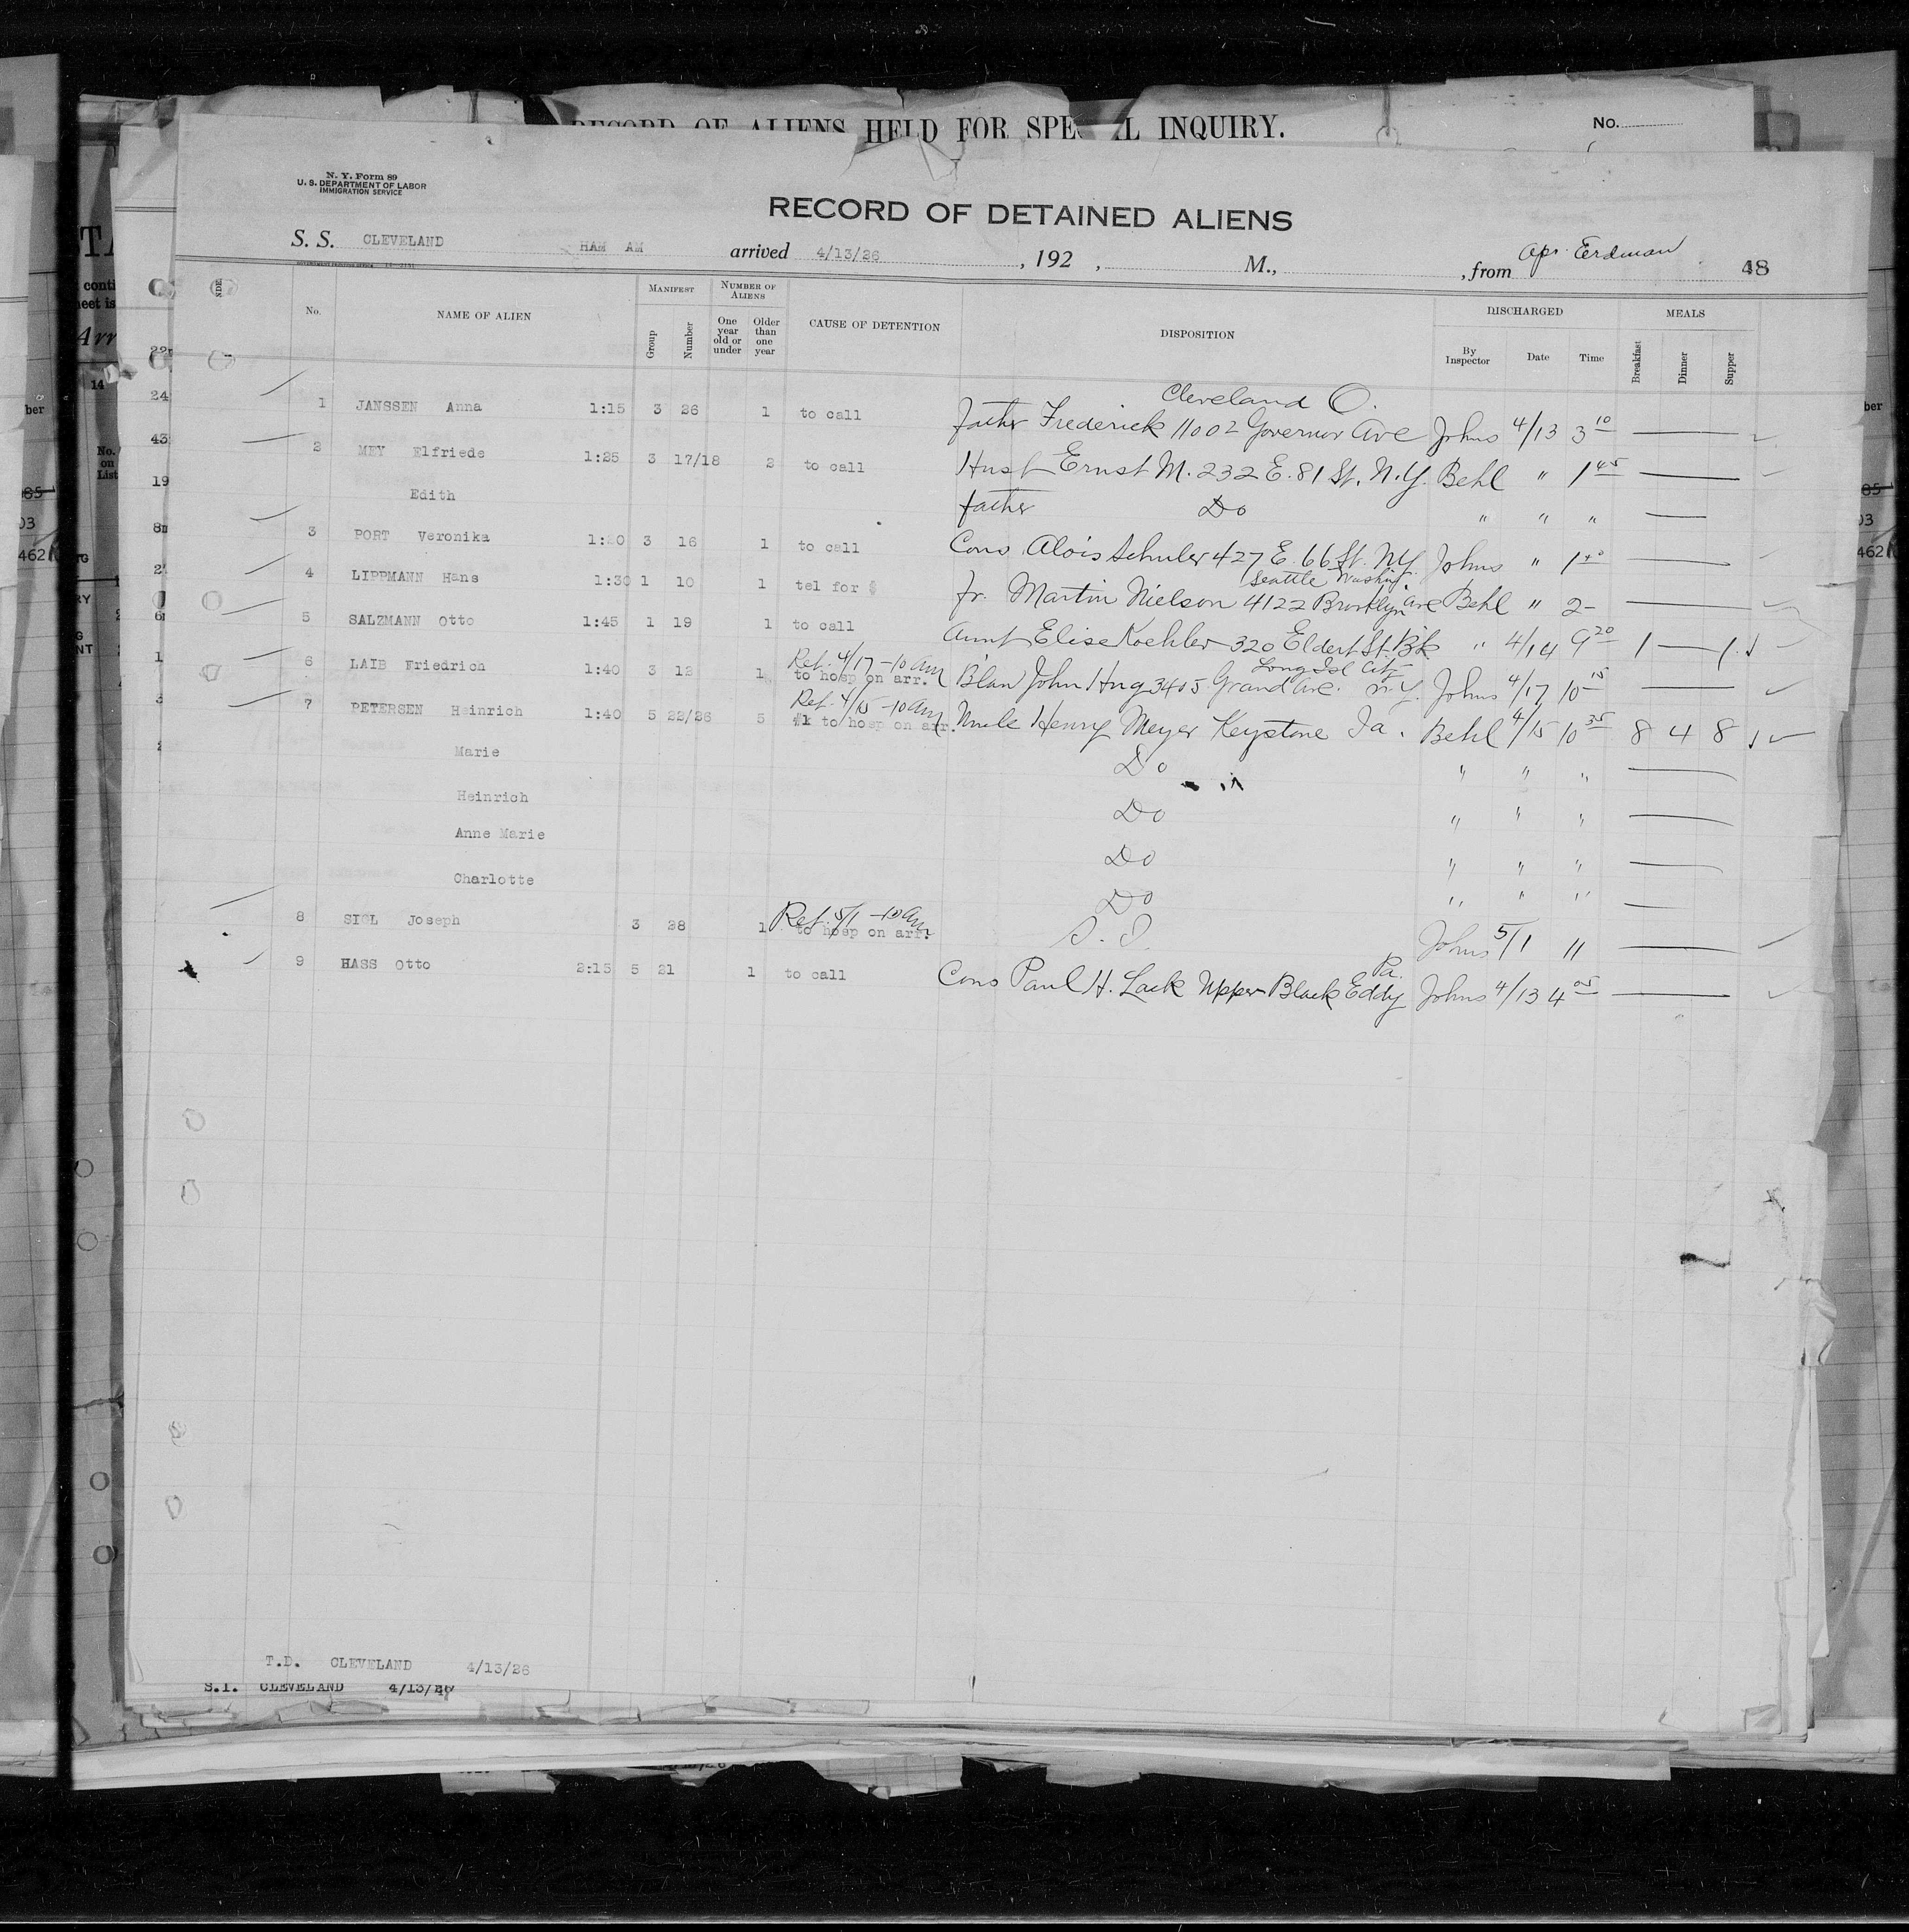 RECORD OF ALIENS HELD FOR SPECIAL INQUIRY.
No.
N. Y. Form 89
U. S. DEPARTMENT OF LABOR
IMMIGRATION SERVICE
RECORD OF DETAINED ALIENS
S. S. CLEVELAND HAM AM arrived 4/13/26 , 192 , M., , from Opr. Erdman 48
No. NAME OF ALIEN MANIFEST Group Number NUMBER OF ALIENS One year old or under Older than one year CAUSE OF DETENTION DISPOSITION DISCHARGED By Inspector Date Time MEALS Breakfast Dinner Supper
Cleveland O.
1 JANSSEN Anna 1:15 3 26 1 to call father Frederick 11002 Governor Ave Johns 4/13 3 10
2 MEY Elfriede 1:25 3 17/18 2 to call Husb Ernst M. 232 E. 81 St. N.Y. Behl " 1 45
Edith father Do " " "
3 PORT Veronika 3 16 1 to call Cons Alois Schuler 427 E. 66 St. NY. Johns "
Seattle Washing.
4 LIPPMANN Hans 1:30 1 10 1 tel for $ fr. Martin Nielson 4122 Brooklyn Ave Behl " 2-
5 SALZMANN Otto 1:45 1 19 1 to call Aunt Elise Koehler 320 Eldert St. Bk. " 4/14 9 20 1 — 1
Ret. 4/17 - 10 am Long Isl City
6 LAIB Friedrich 1:40 3 12 1 to hosp on arr. John Hug 3405 Grand Ave. N.Y. Johns 4/17 10 15
Ret. 4/15 - 10 am
7 PETERSEN Heinrich 1:40 5 22/26 5 #1 to hosp on arr. Uncle Henry Meyer Keystone Ia. Behl 4/15 10 35 8 4 8
Marie Do " " "
Heinrich Do " " "
Anne Marie Do " " "
Charlotte Do " " "
Ret. 5/1 - 10 am
8 SIGL Joseph 3 28 1 to hosp on arr. S. I. Johns 5/1 11
Pa.
9 HASS Otto 2:15 5 21 1 to call Cons Paul H. Lack Upper Black Eddy Johns 4/13 4 05
T.D. CLEVELAND 4/13/26
S.I. CLEVELAND